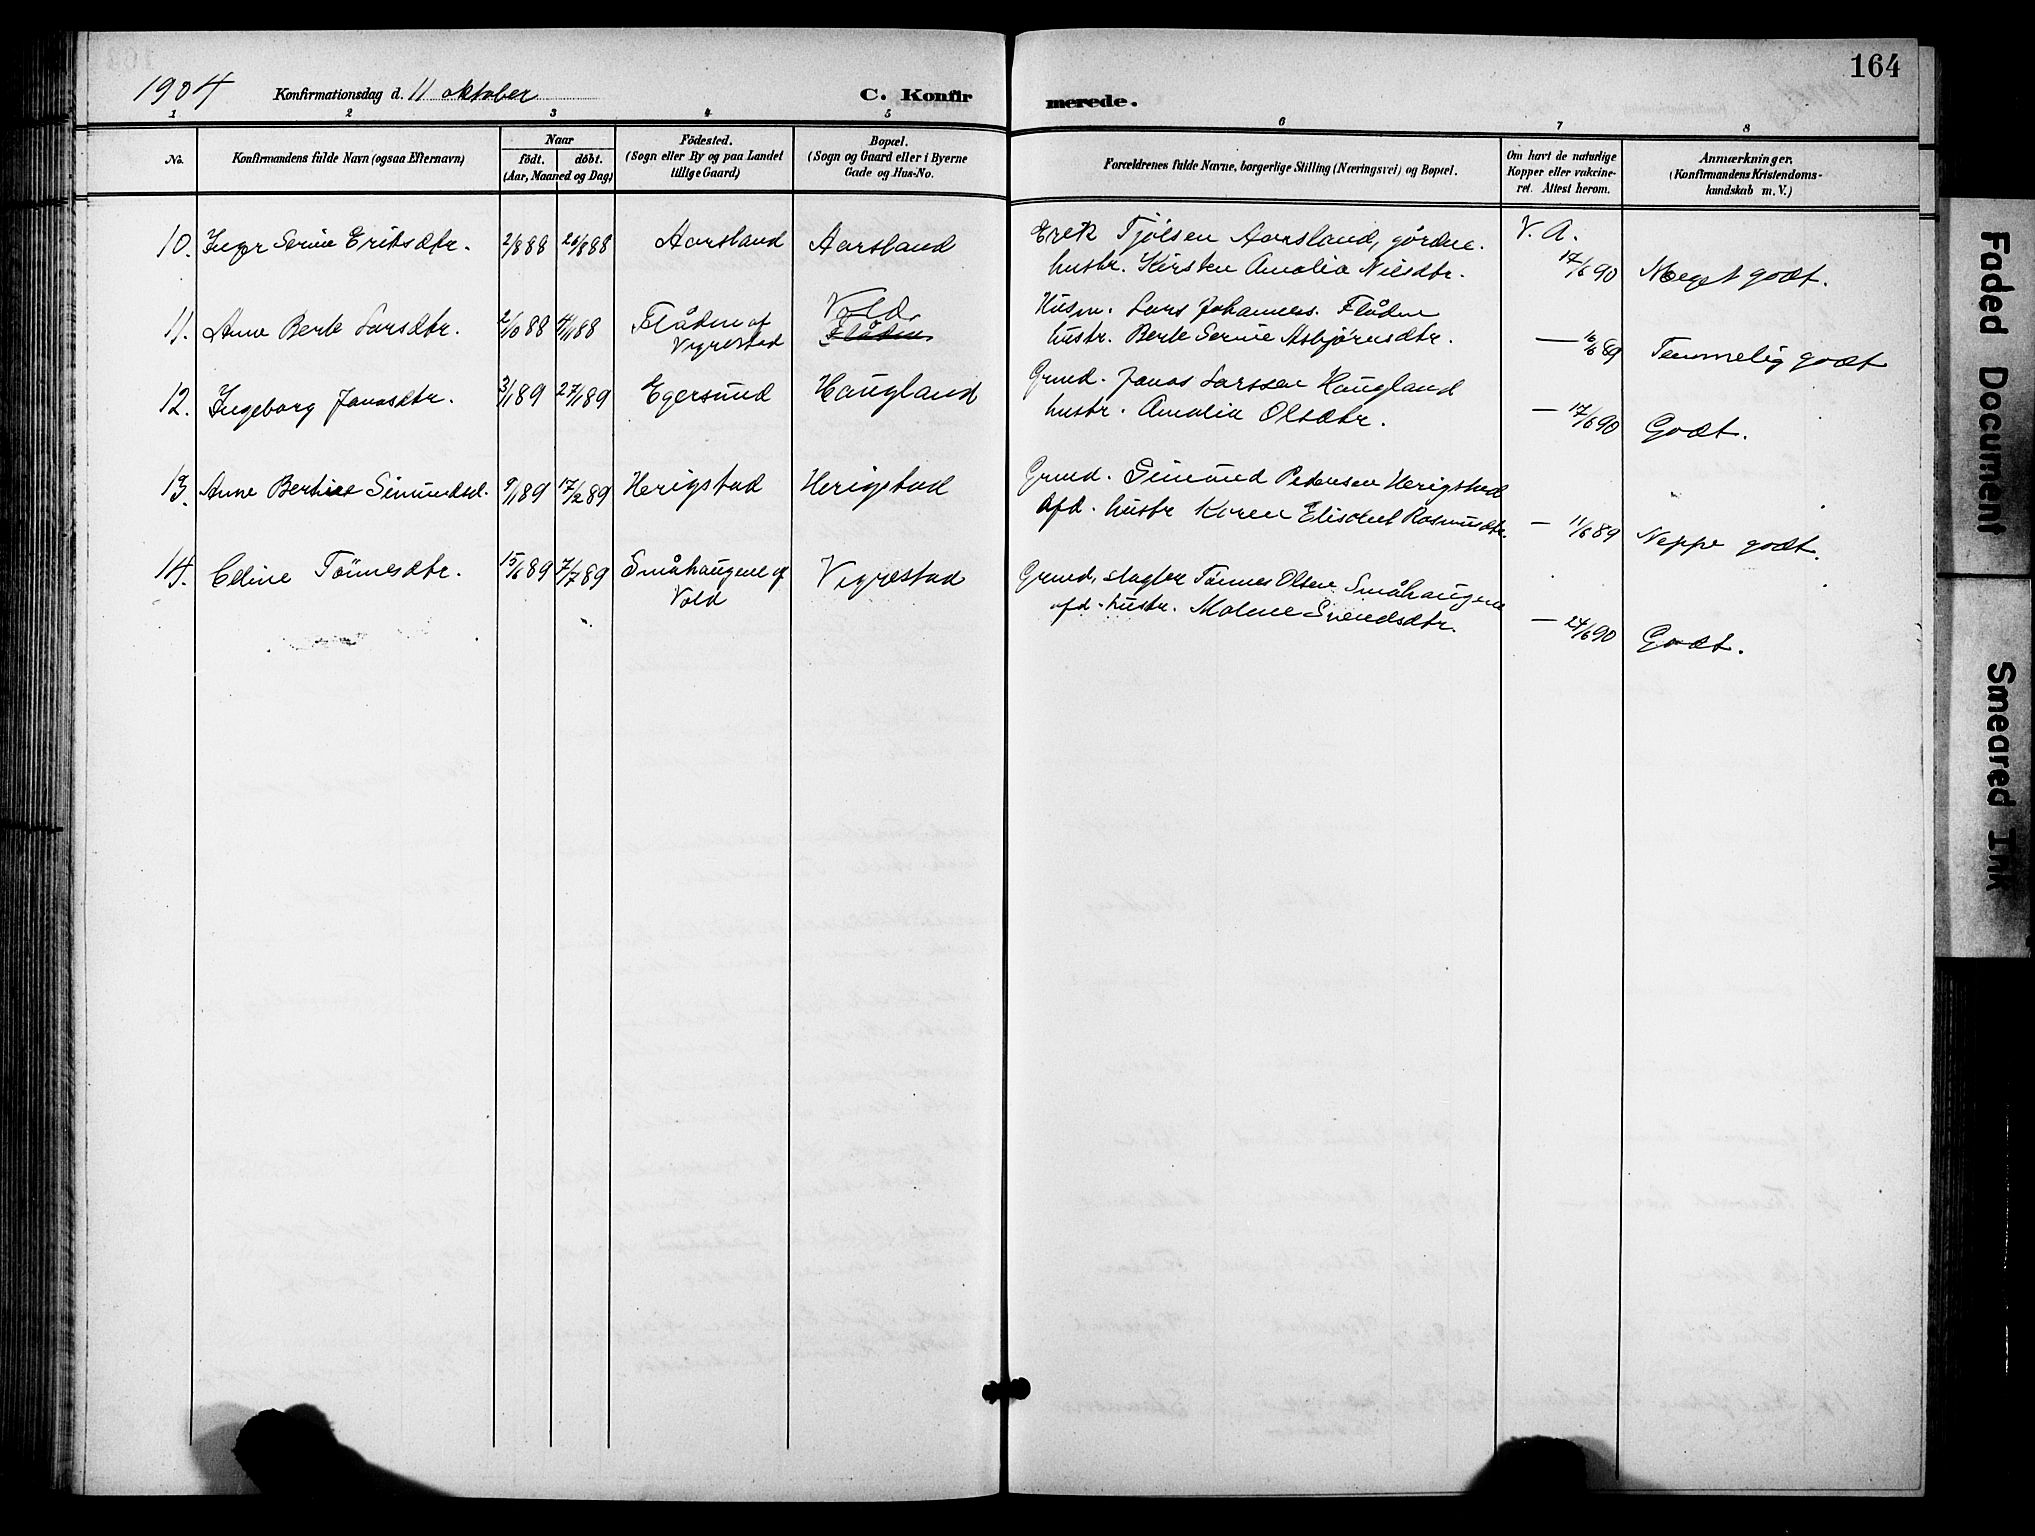 164
1904 Konfirmationsdag d. 11 oktober C. Konfir merede.
1 2 3 4 5 6 7 8
No. Konfirmandens fulde Navn (ogsaa Efternavn)
Naar
født. døbt.
(Aar, Maaned og Dag)
Födested.
(Sogn eller By og paa Landet
tillige Gaard)
Bopæl.
(Sogn og Gaard eller i Byerne
Gade og Hus-No.
Forældrenes fulde Navne, borgerlige Stilling (Næringsvei) og Bopæl.
Om havt de naturlige
Kopper eller vakcine-
ret. Attest herom.
Anmærkninger.
(Konfirmandens Kristendoms-
kundskab m. V.)
10. Inger Serine Eriksdtr. 2/8 88 26/8 88 Aarsland Aarsland
Erik Tjölsen Aarsland, gårdm. V. A.
hustr. Kirsten Amalia Nilsdtr. 17/6 90 Meget godt.
11. Ane Berte Larsdtr. 2/10 88 4/11 88 Flåden af
Vigrestad
Vold.
Flåden
Husm. Lars Johannes. Flåden
hustr. Berte Serine Asbjørnsdtr. — 16/6 89 Temmelig godt
12. Ingeborg Jonasdtr. 3/1 89 27/1 89 Egersund Haugland
Grmd. Jonas Larssen Haugland
hustr. Amalia Olsdtr. — 17/6 90 Godt.
13. Anne Bertine Simundsd. 9/1 89 17/2 89 Herigstad Herigstad
Grmd. Simund Pedersen Herigstad
Afd. hustr Karen Elisabet Rasmusdtr. — 11/6 89 Neppe godt.
14. Eline Tönnesdtr. 15/6 89 7/7 89 Småhaugene af
Vold
Vigrestad
Grmd, slagter Tönnes Olsen Småhaugene
afd. hustr. Malene Svendsdtr. — 24/6 90 Godt.
Faded Document
Smeared Ink